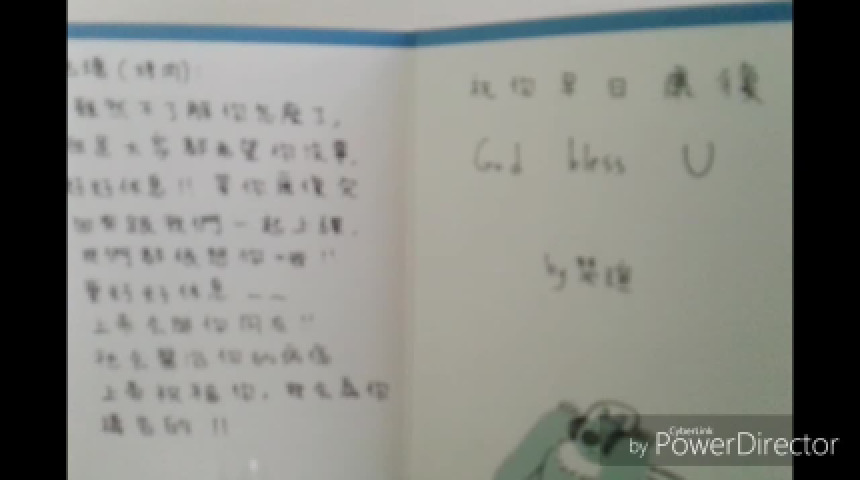 (烤肉):
雖然不了解你怎麼了,
但是大家都希望你沒事,
好好休息!! 等你康復欠
回來跟我們一起上課,
我們都很想你喔!!
要好好休息~~
上帝會與你同在!!
祂會醫治你的病痛
上帝祝福你,我會為你
禱告的!!
祝你早日康復
God bless U
by
CyberLink
by PowerDirector